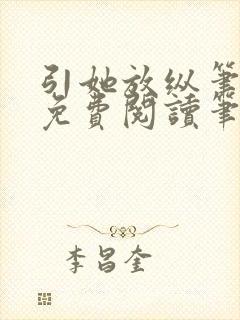 引她放纵笔
免費閱讀筆
李昌奎